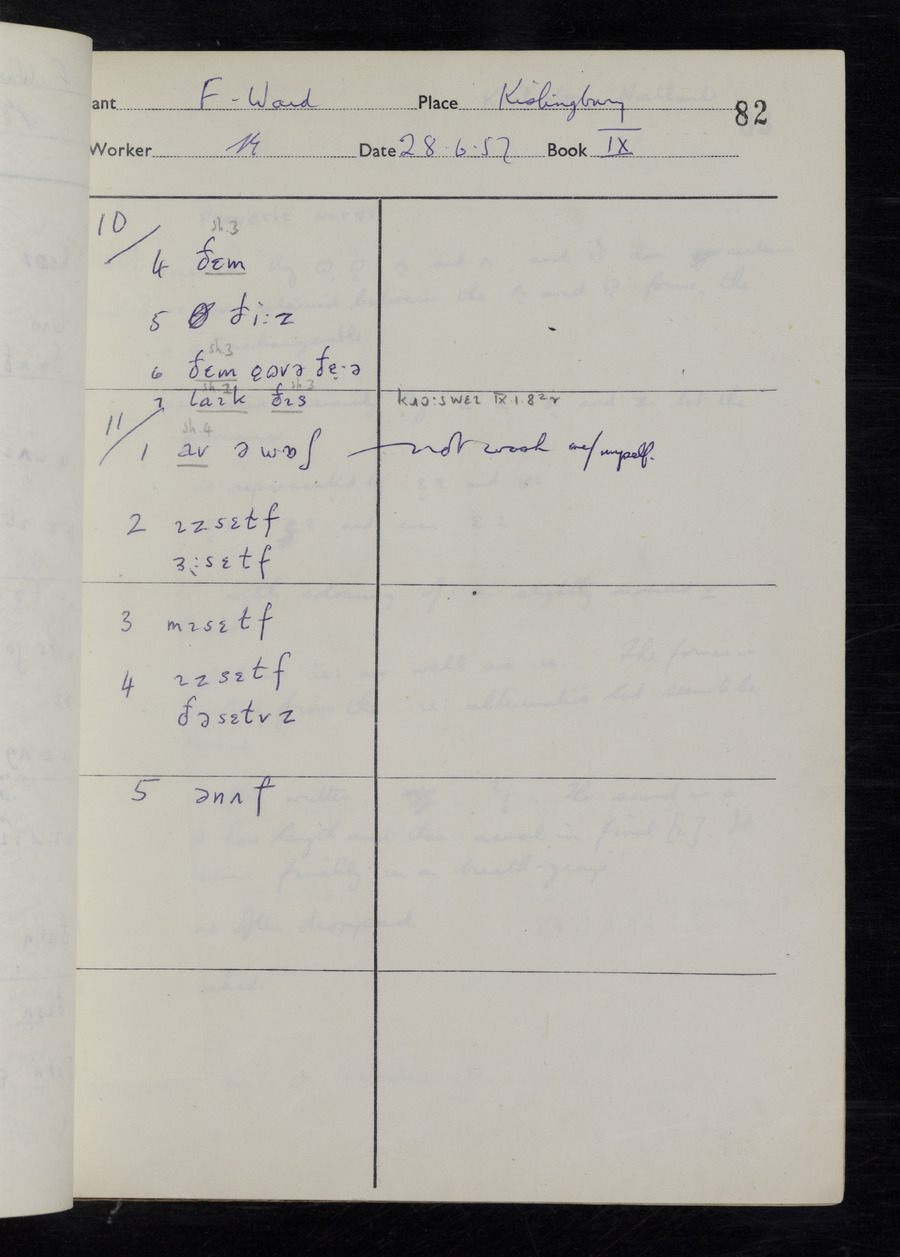 ant F. Ward Place Kislingbury 82
Worker Date 28.6.57 Book IX
10/
sh.3
4 ðɛm
5 ði:z
sh.3
6 ðɛm ɒʊvə ðɛ·ə
sh.2 sh.3
7 laɪk ðɪs kɹɒ:swɛɪ IX.1.8
11/
sh.4
1 av ə wɒʃ — not wash me/myself.
2 ɪzsɛtf
ɜ:sɛtf
3 mɪsɛtf
4 ɪzsɛtf
ðəsɛtvz
5 ənʌf